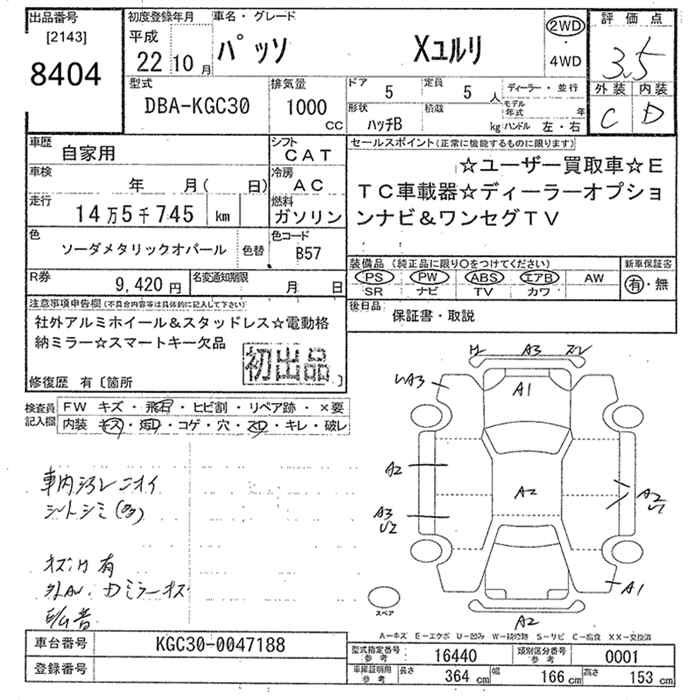 出品番号
[2143]
8404
初度登録年月
平成
22 10 月
車名・グレード
パッソ Xユルリ
2WD
・
4WD
評価点
3.5
外装 内装
C D
型式
DBA-KGC30
排気量
1000 CC
ドア
5
定員
5 人
ディーラー・並行
形状
ハッチB
積載
kg
モデル年式 年
ハンドル 左・右
車歴
自家用
シフト
CAT
車検
年 月( 日)
冷房
AC
走行
14万5千745 km
燃料
ガソリン
色
ソーダメタリックオパール
色替
色コード
B57
R券
9,420 円
名変通知期限
月 日
セールスポイント(正常に機能するものに限ります)
☆ユーザー買取車☆E
TC車載器☆ディーラーオプショ
ンナビ&ワンセグTV
装備品 (純正品に限り○をつけてください)
PS PW ABS エアB AW
SR ナビ TV カワ
新車保証書
有・無
後日品
保証書・取説
注意事項申告欄(不具合内容等は具体的に記入して下さい)
社外アルミホイール&スタッドレス☆電動格
納ミラー☆スマートキー欠品
初出品
修復歴 有〔箇所 〕
検査員
記入欄
FW キズ・飛石・ヒビ割・リペア跡・×要
内装・キズ・汚D・コゲ・穴・スD・キレ・破レ
車内汚レニオイ
シートシミ(多)
キズ凹有
A3
A1
A3
A2
A2
A2
A3
A1
A2
スペア
A-キズ E-エクボ U-凹み W-補修跡 S-サビ C-腐食 XX-交換済
車台番号
KGC30-0047188
登録番号
型式指定番号
参考
16440
類別区分番号
参考
0001
車庫証明用
参考
長さ 364 cm 幅 166 cm 高さ 153 cm